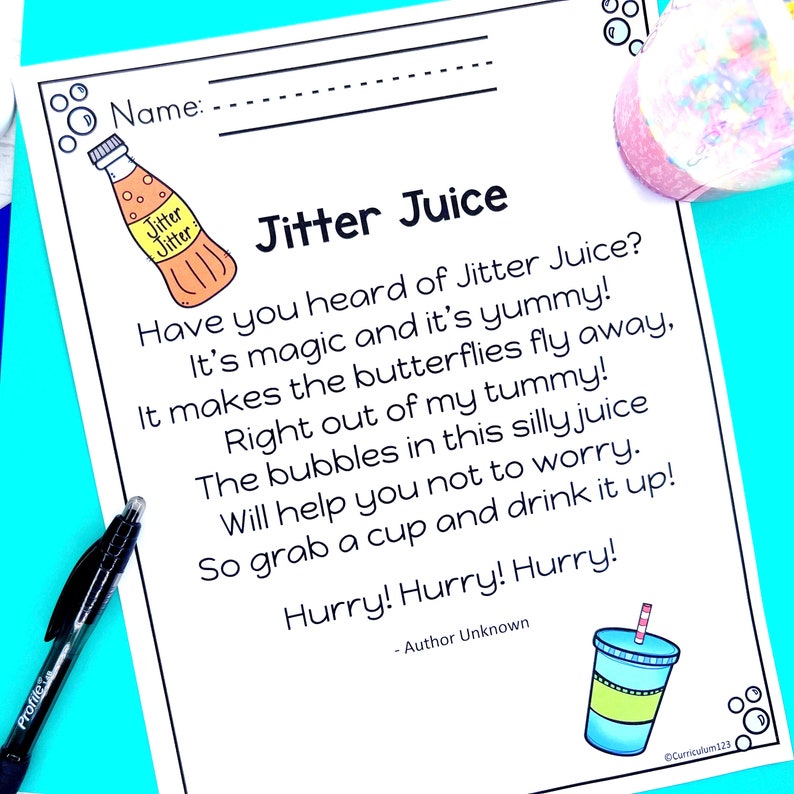 Name:
Jitter
Jitter
Jitter Juice
Have you heard of Jitter Juice?
It's magic and it's yummy!
It makes the butterflies fly away,
Right out of my tummy!
The bubbles in this silly juice
Will help you not to worry.
So grab a cup and drink it up!
Hurry! Hurry! Hurry!
- Author Unknown
Profile
©Curriculum123